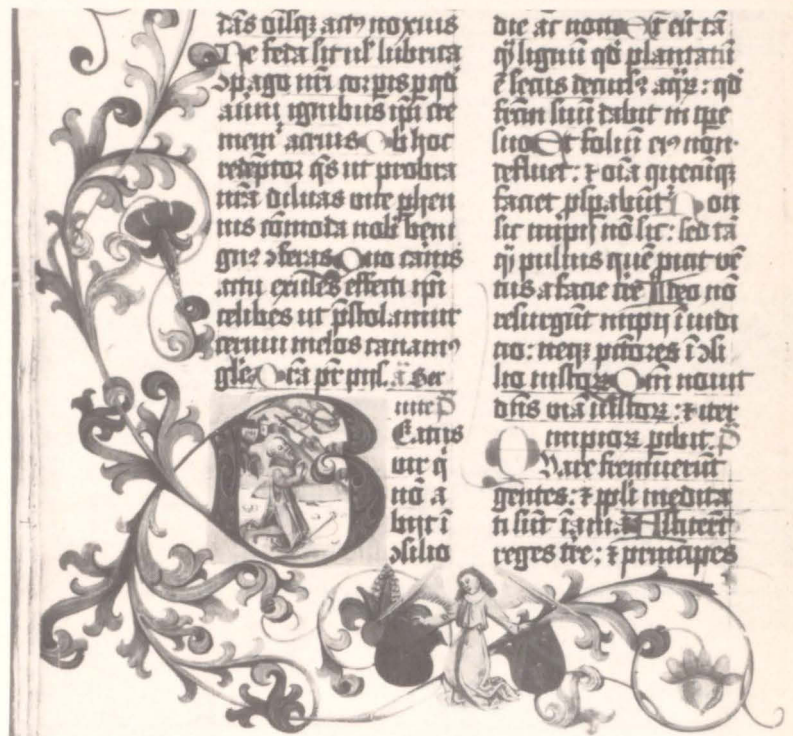 tās oīsqꝫ actꝰ noxius
Ne feda sit ul' lubrica
ꝯpago nr̄i corpis p qd̄
auūi ignibus ip̄i cre
mem' acrius Ob hoc
redēptor q̄s ut probra
nr̄a diluas uite phen
nis cōmoda nob̄ beni
gne ꝯferas Quo carnis
actu exules effecti ip̄i
celibes ut p̄stolamur
cernui melos canamꝰ
glīe
Beatus
uir q̄
nō a
bijt ī
ꝯsilio
die ac nocte Et erit tā
q̄ lignū qd̄ plantatū
ē secus decursꝰ aq̄ꝝ : qd̄
suū dabit in tp̄e
suo Et foliū eiꝰ non
defluet : ⁊ oīa quecūqꝫ
faciet ꝓspabūt Non
sic impij nō sic : sed tā
q̄ puluis quē ꝓicit vē
tus a facie tr̄e Ideo nō
resurgūt impij ī iudi
cio : neqꝫ pctōres ī ꝯsi
lio iustoꝝ Qm̄ nouit
dn̄s viā iustoꝝ : ⁊ iter
impioꝝ pibit. p̄
Quare fremuerūt
gentes : ⁊ ppl̄i medita
ti sūt īania Astiterūt
reges tr̄e : ⁊ principes